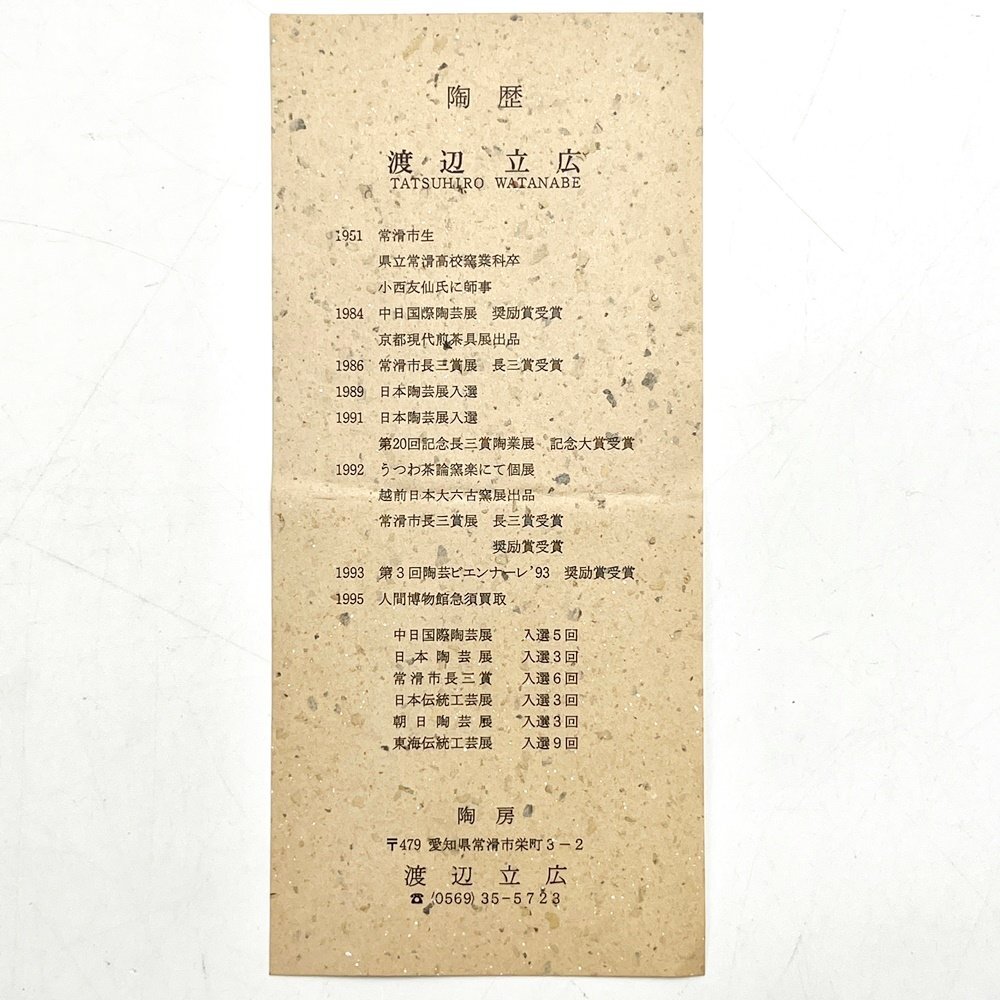 陶歴
渡辺 立広
TATSUHIRO WATANABE
1951 常滑市生
県立常滑高校窯業科卒
小西友仙氏に師事
1984 中日国際陶芸展 奨励賞受賞
京都現代煎茶具展出品
1986 常滑市長三賞展 長三賞受賞
1989 日本陶芸展入選
1991 日本陶芸展入選
第20回記念長三賞陶業展 記念大賞受賞
1992 うつわ茶論窯楽にて個展
越前日本大六古窯展出品
常滑市長三賞展 長三賞受賞
奨励賞受賞
1993 第3回陶芸ビエンナーレ'93 奨励賞受賞
1995 人間博物館急須買取
中日国際陶芸展 入選5回
日本陶芸展 入選3回
常滑市長三賞 入選6回
日本伝統工芸展 入選3回
朝日陶芸展 入選3回
東海伝統工芸展 入選9回
陶房
〒479 愛知県常滑市栄町3-2
渡辺立広
☎(0569)35-5723